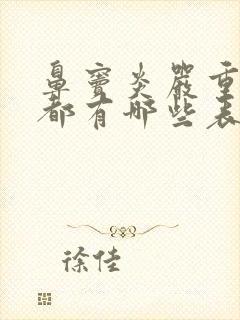 鼻窦炎严重
都有哪些表
徐佳